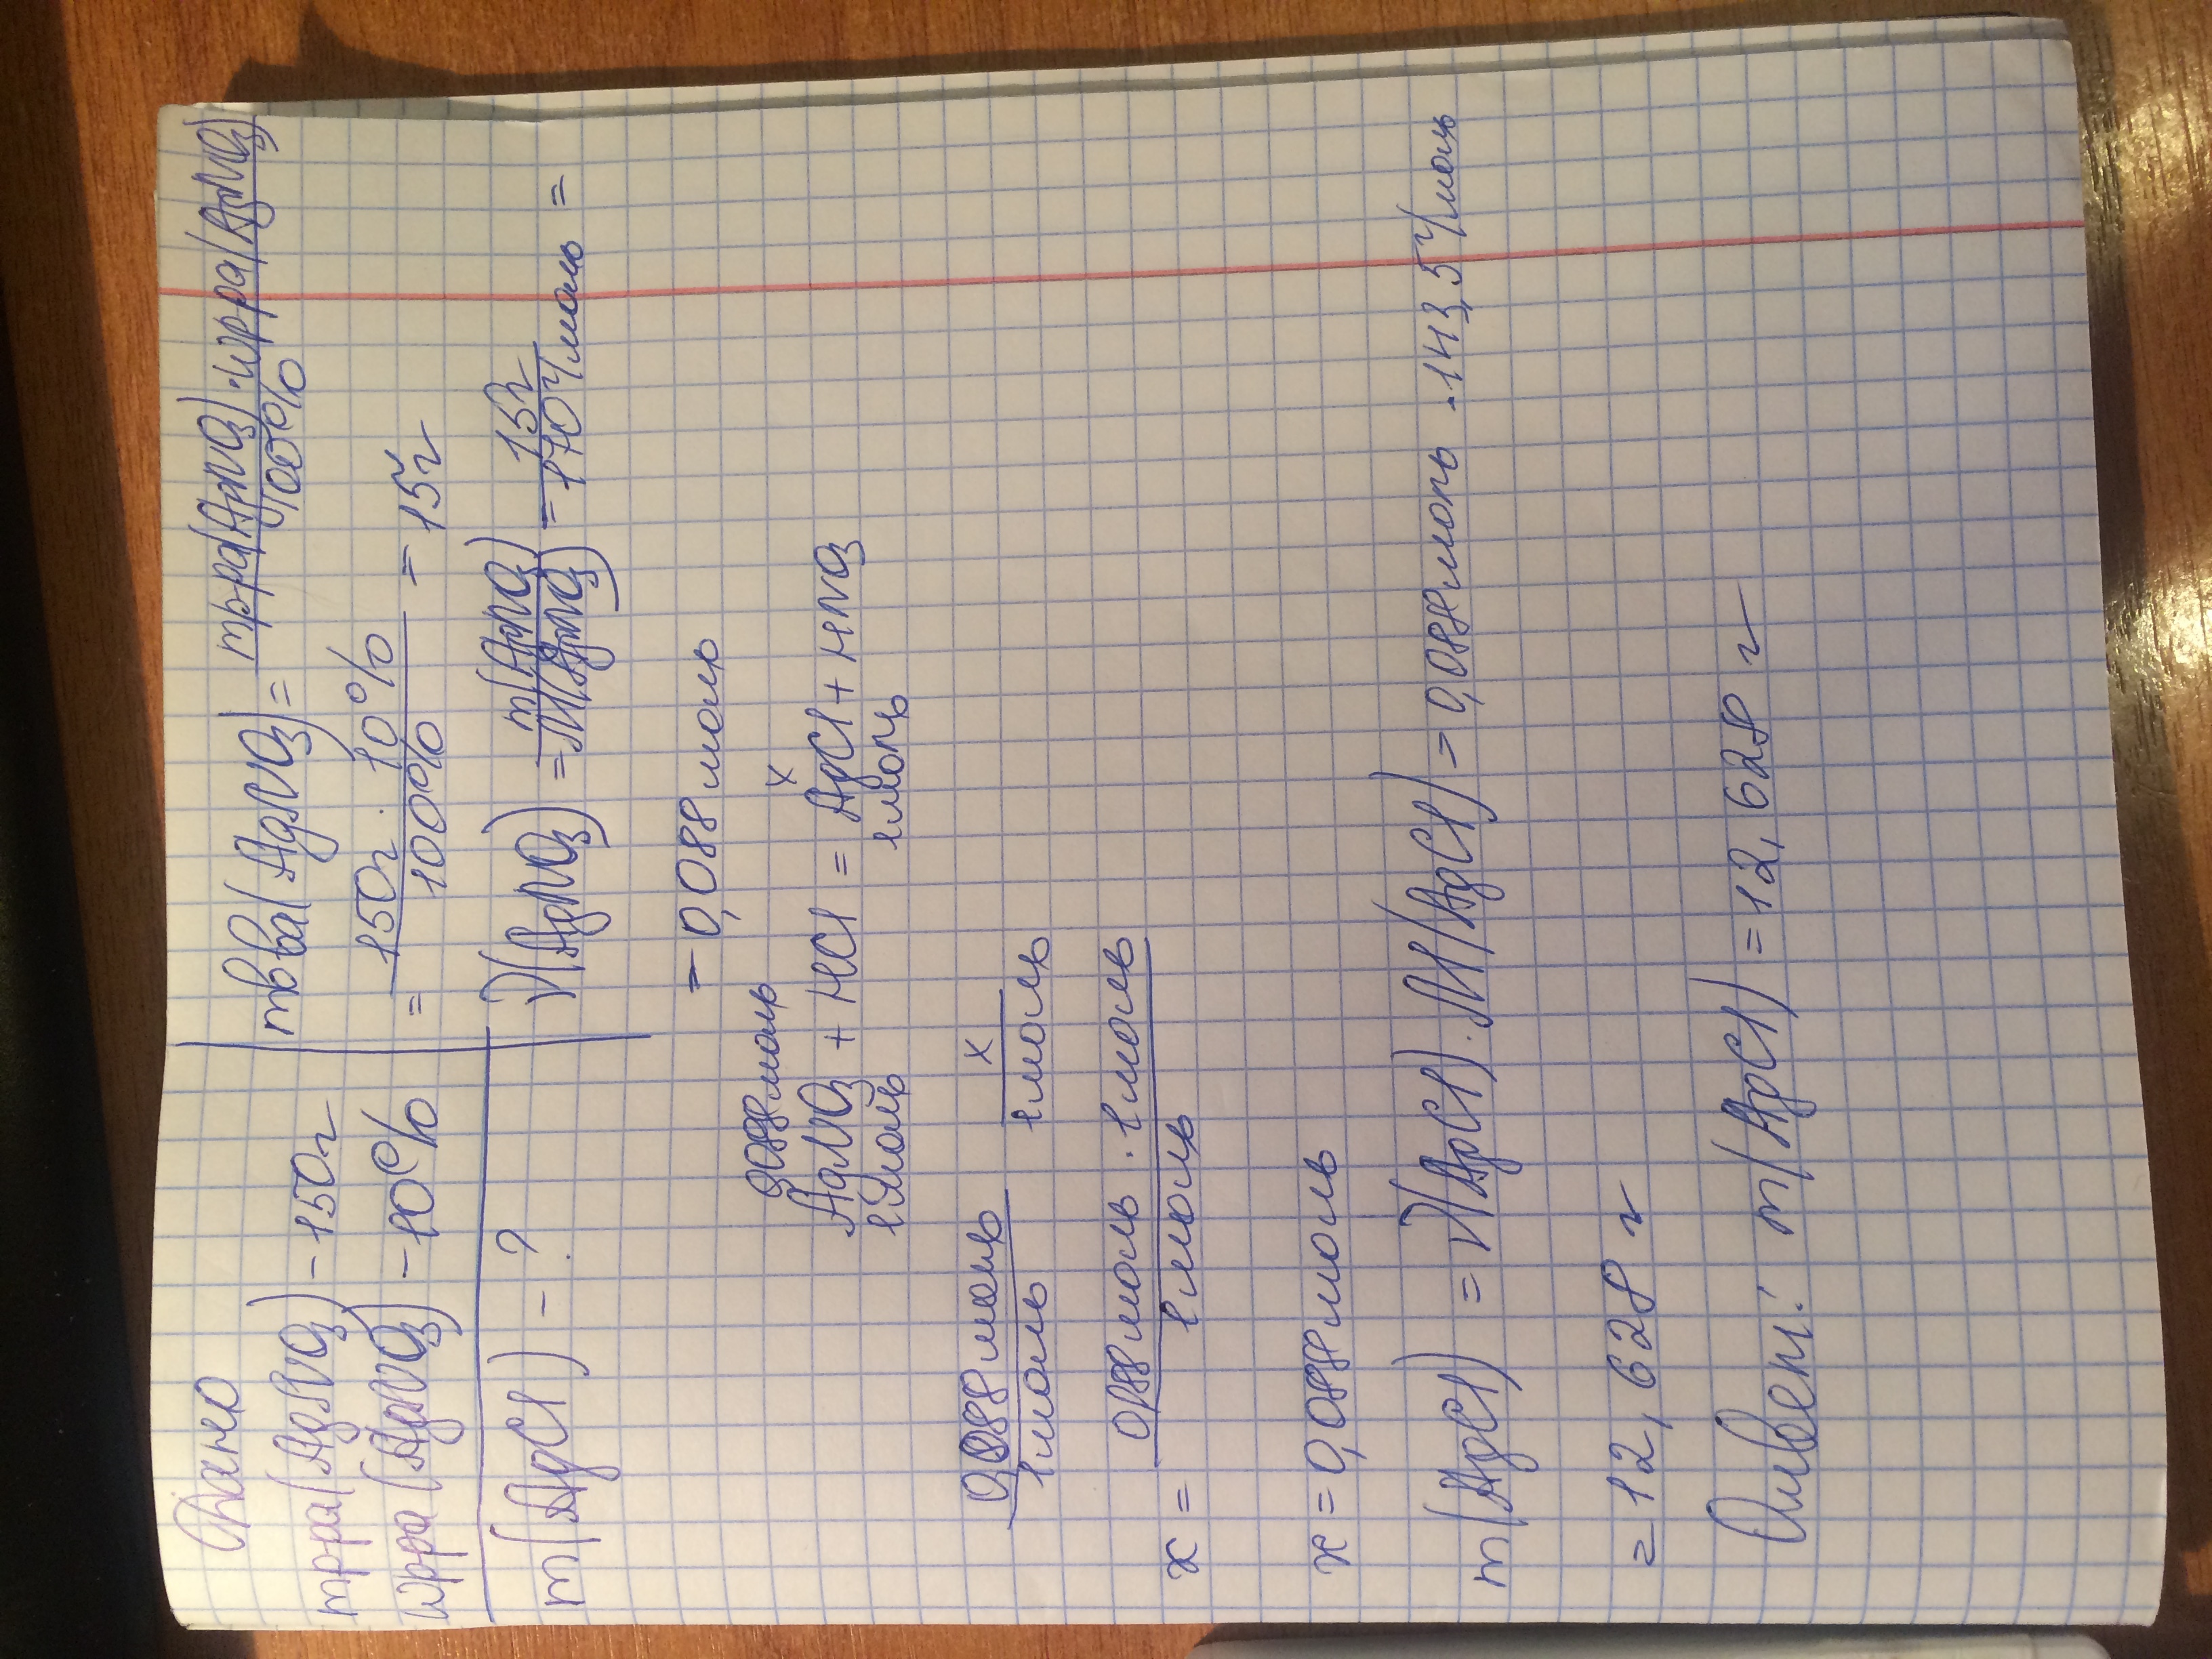 Дано
mр-ра(AgNO3) - 150г
wр-ра(AgNO3) - 10%
m(AgCl) - ?
mв-ва(AgNO3) = mр-ра(AgNO3) · wр-ра(AgNO3) / 100%
= 150г · 10% / 100% = 15г
ν(AgNO3) = m(AgNO3) / M(AgNO3) = 15г / 170 г/моль =
= 0,088 моль
0,088 моль x
AgNO3 + HCl = AgCl + HNO3
1 моль 1 моль
0,088 моль / 1 моль x / 1 моль
x = 0,088 моль · 1 моль / 1 моль
x = 0,088 моль
m(AgCl) = ν(AgCl) · M(AgCl) = 0,088 моль · 143,5 г/моль
= 12,628 г
Ответ: m(AgCl) = 12,628 г